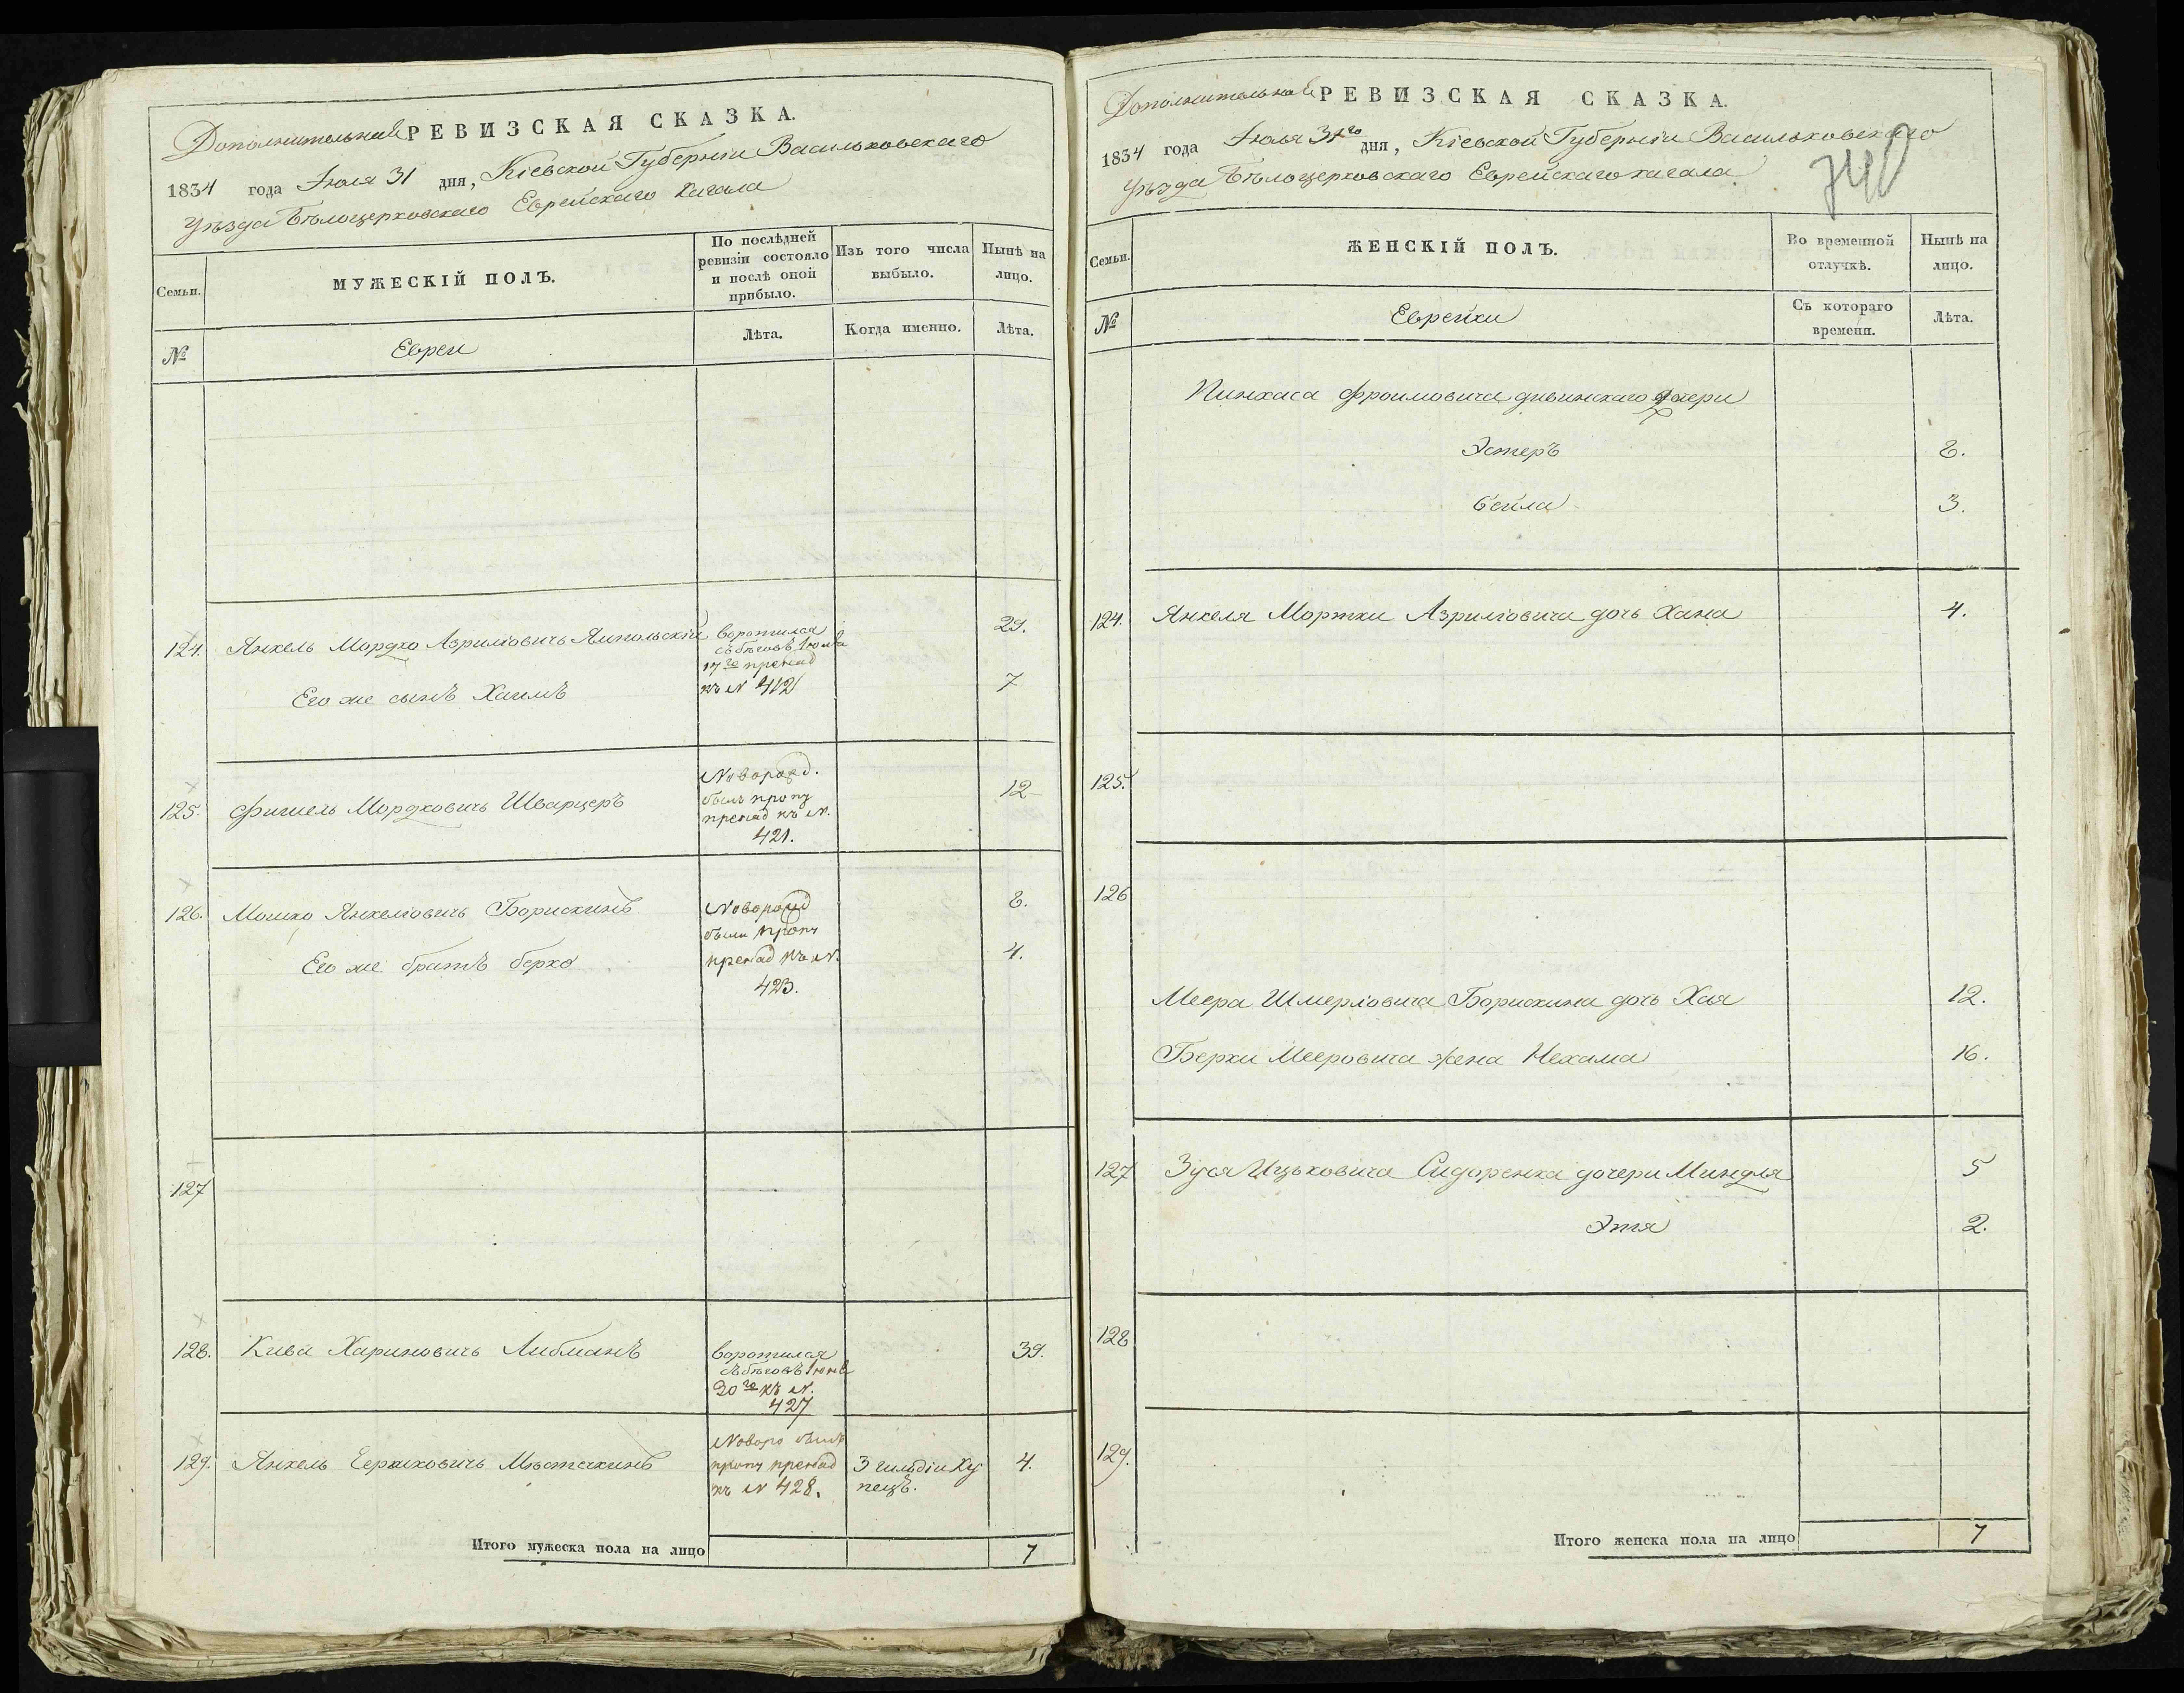 Дополнительная РЕВИЗСКАЯ СКАЗКА.
1834 года Июля 31 дня, Кіевской Губерніи Васильковскаго
Уѣзда Бѣлоцерковскаго Еврейскаго Кагала
Семьи.
МУЖЕСКІЙ ПОЛЪ.
По послѣдней
ревизіи состояло
и послѣ оной
прибыло.
Изъ того числа
выбыло.
Нынѣ на
лицо.
№
Евреи
Лѣта.
Когда именно.
Лѣта.
124. Янкель Мордко Азриліовичь Ямпольскій воротился 29.
съ бѣговъ Іюля
17го принад
къ № 412
Его же сынъ Хаимъ 7
125. Фишель Мордковичь Шварцеръ 12
Новорожд.
былъ проп
принад къ №.
421.
126. Мошко Янкеліовичь Борискинъ 8.
Новорожд
были проп
принад къ №.
423.
Его же братъ Берко 4.
127
128. Кива Хариновичь Либманъ 39.
воротился
съ бѣговъ Іюня
20го къ №.
427
129. Янкель Мѣстечкинъ 4.
Новоро былъ
проп принад
къ № 428.
3 гильдіи Ку
пецъ.
Итого мужеска пола на лицо 7
Дополнительная РЕВИЗСКАЯ СКАЗКА.
1834 года Июля 31го дня, Кіевской Губерніи Васильковскаго
Уѣзда Бѣлоцерковскаго Еврейскаго кагала
740
Семьи.
ЖЕНСКІЙ ПОЛЪ.
Во временной
отлучкѣ.
Нынѣ на
лицо.
№
Еврейки
Съ котораго
времени.
Лѣта.
Пинхаса Фроимовича дивинскаго дочери
Эстеръ 8.
Бейла 3.
124. Янкеля Мортки Азриліовича дочь Хана 4.
125.
126
Меера Шмерліовича Борискина дочь Хая 12.
Берки Мееровича жена Нехама 16.
127 Зуся Ицьковича Сидоренка дочери Миндля 5
Этя 2.
128
129.
Итого женска пола на лицо 7